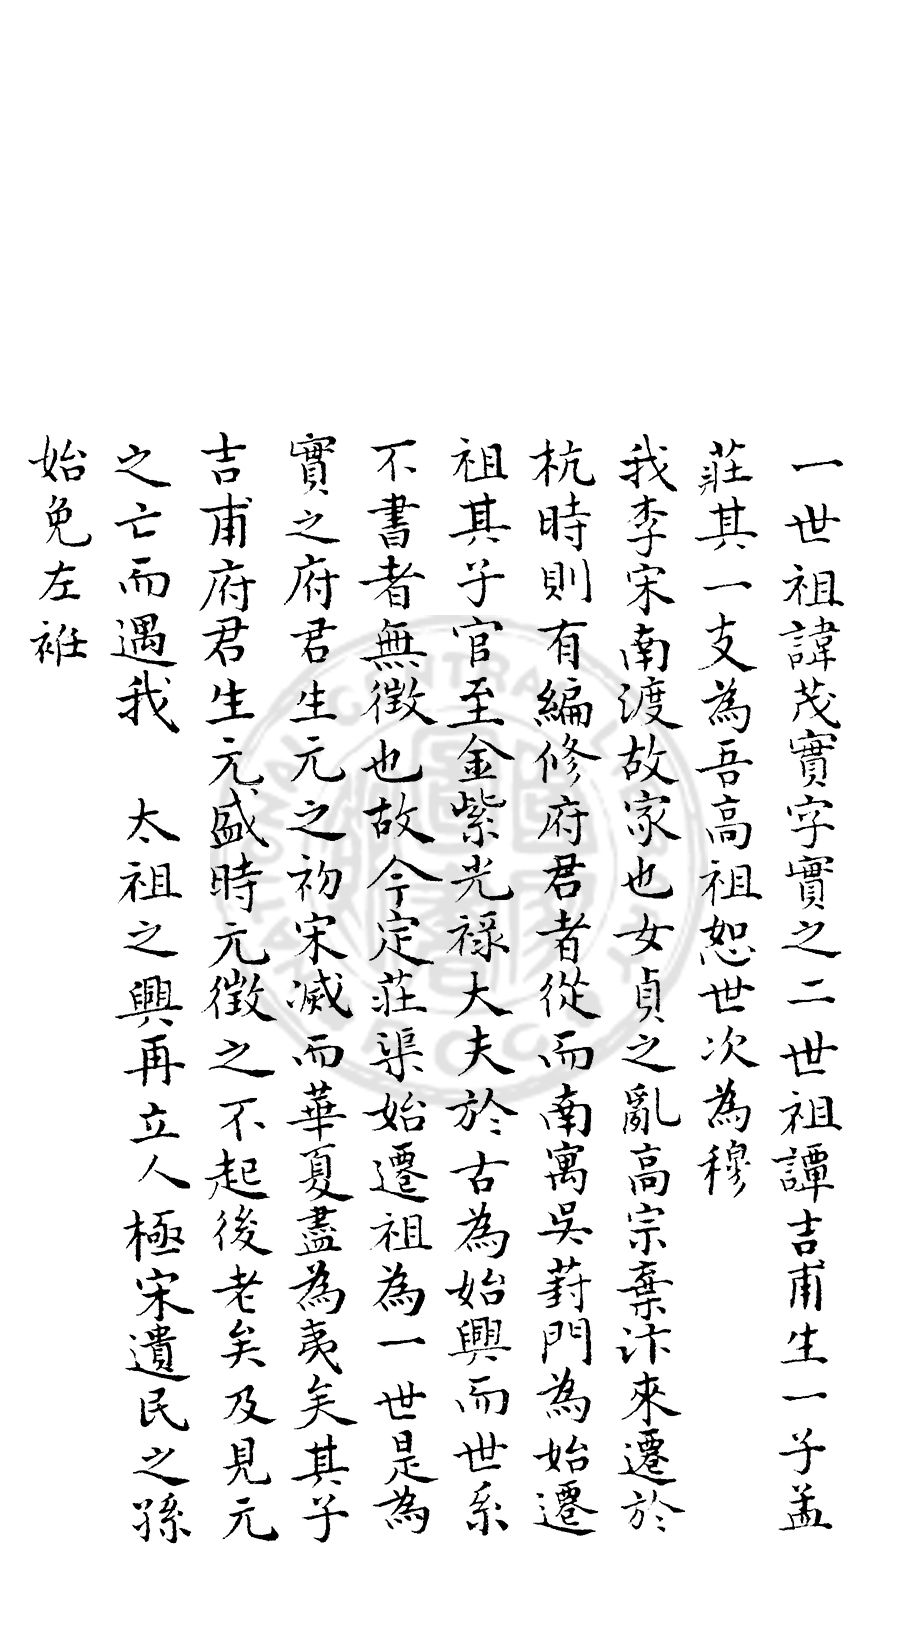 一世祖諱茂實字實之二世祖譚吉甫生一子盖
莊其一支為吾高祖恕世次為穆
我李宋南渡故家也女貞之亂高宗棄汴來遷於
杭時則有編修府君者從而南寓吳葑門為始遷
祖其子官至金紫光祿大夫於古為始興而世系
不書者無徵也故今定莊渠始遷祖為一世是為
實之府君生元之初宋滅而華夏盡為夷矣其子
吉甫府君生元盛時元徵之不起後老矣及見元
之亡而遇我 太祖之興再立人極宋遺民之孫
始免左袵